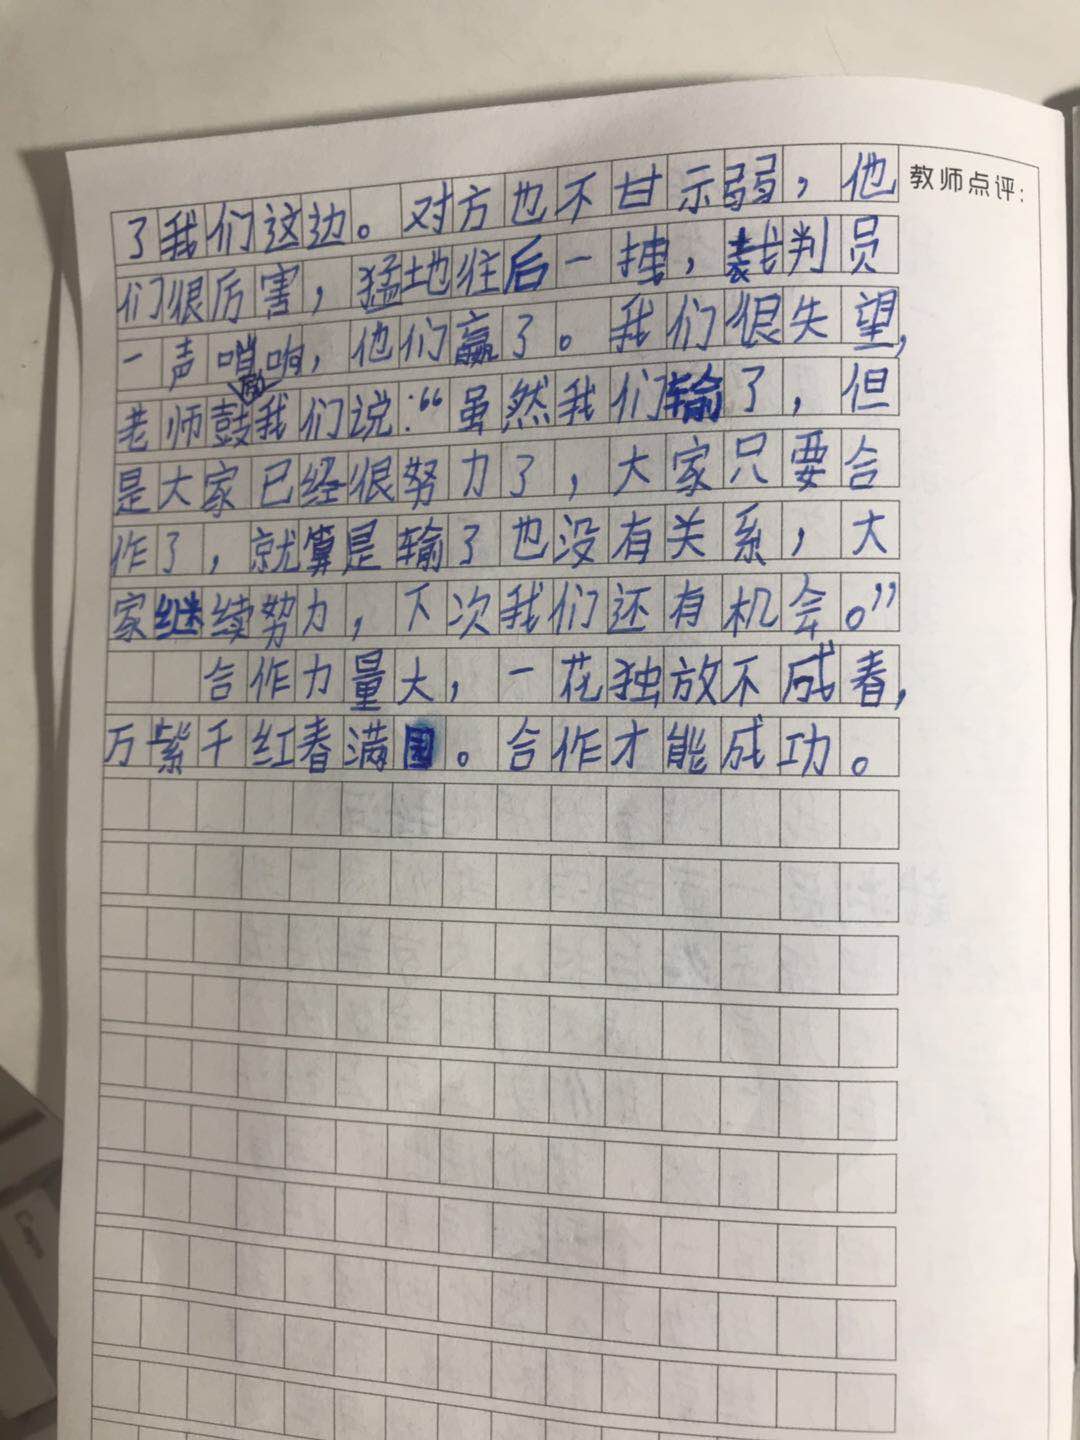 教师点评：
了我们这边。对方也不甘示弱，他
们很厉害，猛地往后一拽，裁判员
一声哨响，他们赢了。我们很失望，
老师鼓励我们说：“虽然我们输了，但
是大家已经很努力了，大家只要合
作了，就算是输了也没有关系，大
家继续努力，下次我们还有机会。”
合作力量大，一花独放不成春，
万紫千红春满园。合作才能成功。